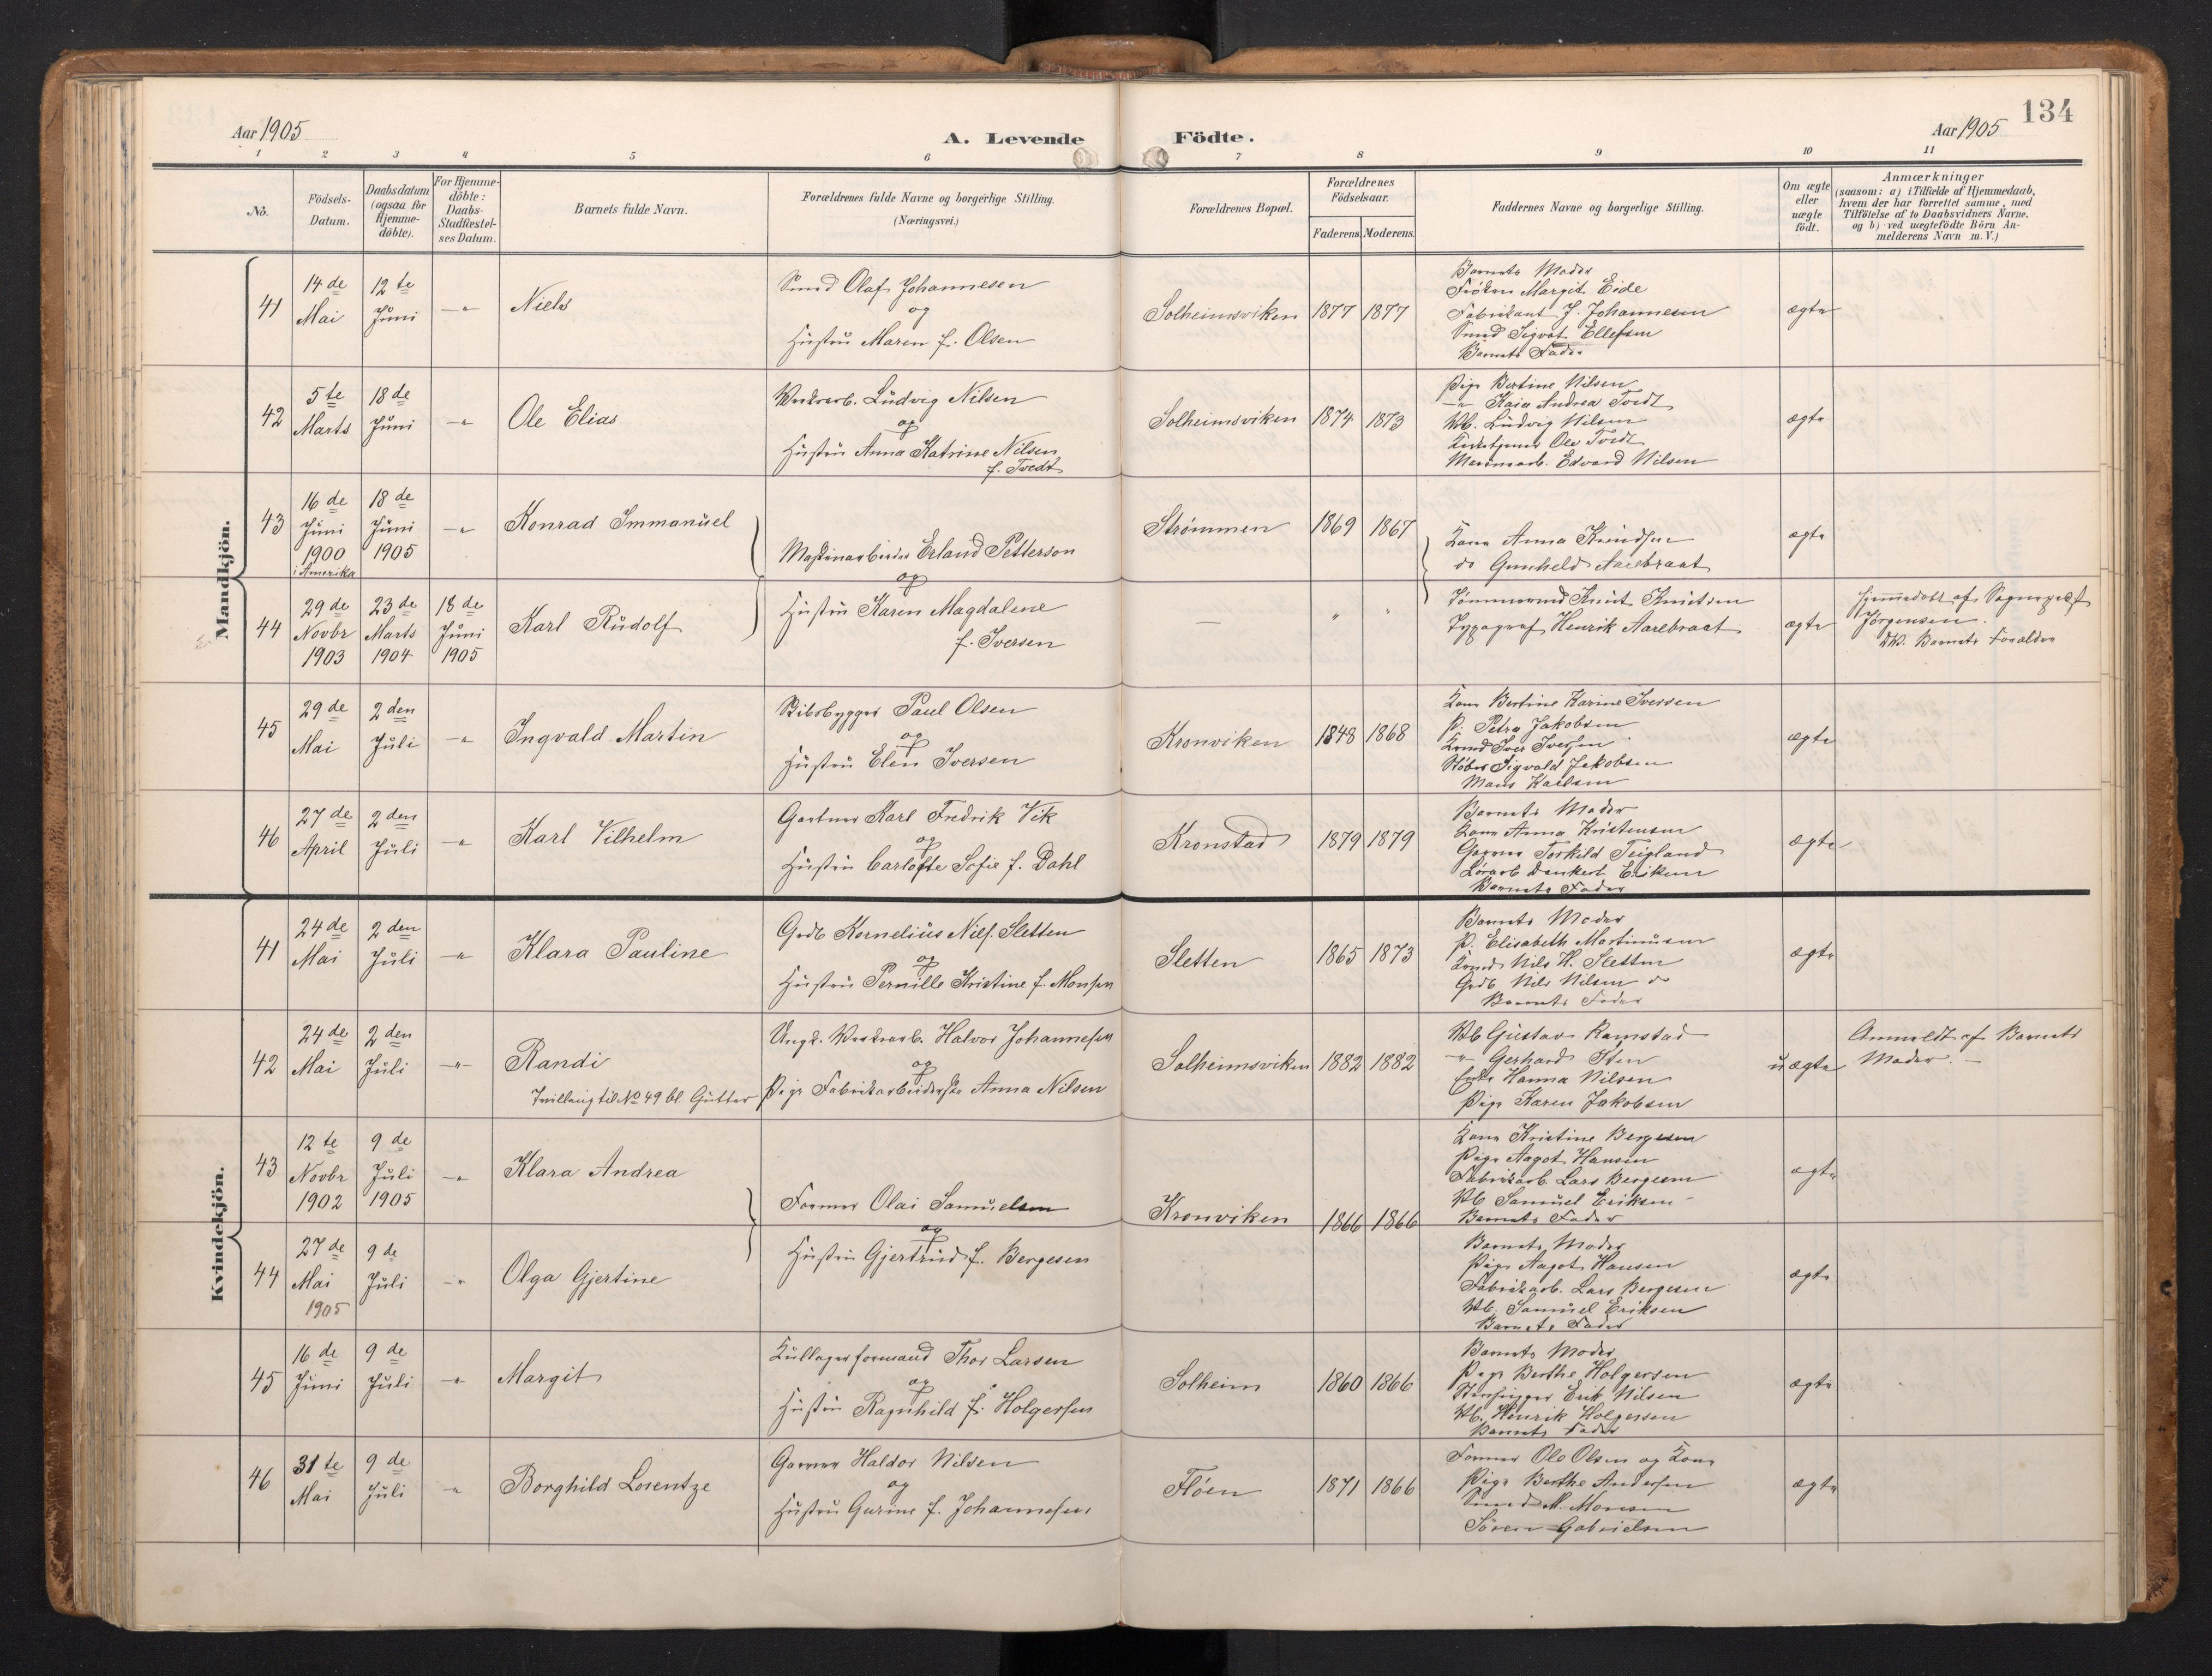 134
Aar 1905
Aar 1905
A. Levende Födte.
1 2 3 4 5 6 7 8 9 10 11
No.
Födsels-
Datum.
Daabsdatum
(ogsaa for
Hjemme-
döbte).
For Hjemme-
döbte:
Daabs-
Stadfestel-
ses Datum.
Barnets fulde Navn.
Forældrenes fulde Navne og borgerlige Stilling.
(Næringsvei.)
Forældrenes Bopæl.
Forældrenes
Födselsaar.
Faderens. Moderens.
Faddernes Navne og borgerlige Stilling.
Om ægte
eller
uægte
födt.
Anmærkninger
(saasom: a) i Tilfælde af Hjemmedaab,
hvem der har forrettet samme, med
Tilföielse af to Daabsvidners Navne,
og b) ved uægtefödte Börn An-
melderens Navn m. V.)
Mandkjön.
41
14 de
Mai
12 te
Juni
Niels
Smed Olaf Johannesen
og
Hustru Maren f. Olsen
Solheimsviken
1877 1877
Barnets Moder
Frøken Margit Eide
Fabrikant J. Johannesen
Smed Sigvat Ellefsen
Barnets Fader
ægte
42
5 te
Marts
18 de
Juni
Ole Elias
Værksarb. Ludvig Nilsen
og
Hustru Anna Katrine Nilsen
f. Tvedt
Solheimsviken
1874 1873
Pige Bertine Nilsen
-"- Kaia Andrea Tvedt
Vb. Ludvig Nilsen
Kirketjener Ole Tvedt
Edvard Nilsen
ægte
43
16 de
Juni
1900
i Amerika
18 de
Juni
1905
Konrad Immanuel
Maskinarbeider Erland Petterson
og
Hustru Karen Magdalene
f. Iversen
Strømmen
1869 1867
Kone Anna Knudsen
do Gunhild Aarebraat
ægte
44
29 de
Novbr
1903
23 de
Marts
1904
18 de
Juni
1905
Karl Rudolf
— " "
Tømmermd Knut Knutsen
Typograf Henrik Aarebraat
ægte
Hjemmedøbt af Sognepræst
Jörgensen.
DV. Barnets Forældre
45
29 de
Mai
2 den
Juli
Ingvald Martin
Skibsbygger Paul Olsen
og
Hustru Elen Iversen
Kronviken
1848 1868
Kone Bertine Karine Iversen
P. Petra Jakobsen
Iver Iversen
Støber Sigvald Jakobsen
Mons Karlsen
ægte
46
27 de
April
2 den
Juli
Karl Vilhelm
Gartner Karl Fredrik Vik
og
Hustru Carlotte Sofie f. Dahl
Kronstad
1879 1879
Barnets Moder
Kone Anna Kristensen
Garver Torkild Teigland
Dankert Eriksen
Barnets Fader
ægte
Kvindekjön.
41
24 de
Mai
2 den
Juli
Klara Pauline
Grdb Kornelius Nils. Sletten
og
Hustru Pernille Kristine f. Monsen
Sletten
1865 1873
Barnets Moder
P. Elisabeth Martinusen
Nils H. Sletten
Grdb Nils Nilsen do
Barnets Fader
ægte
42
24 de
Mai
2 den
Juli
Randi
Tvilling til No 49 bl. Gutter
Ungk. Værksarb. Halvor Johannesen
og
Pige Fabrikarbeiderske Anna Nilsen
Solheimsviken
1882 1882
Vb Gustav Ramstad
-"- Gerhard Sten
Enke Hanna Nilsen
Pige Karen Jakobsen
uægte
Anmeldt af Barnets
Moder. —
43
12 te
Novbr
1902
9 de
Juli
1905
Klara Andrea
Former Olai Samuelsen
og
Hustru Gjertrud f. Bergesen
Kronviken
1866 1866
Kone Kristine Bergesen
Pige Aagot Hansen
Fabrikarb. Lars Bergesen
Vb Samuel Eriksen
Barnets Fader
ægte
44
27 de
Mai
1905
9 de
Juli
Olga Gjertine
Barnets Moder
Pige Aagot Hansen
Fabrikarb. Lars Bergesen
Vb. Samuel Eriksen
Barnets Fader
ægte
45
16 de
Juni
9 de
Juli
Margit
Kullagerformand Thor Larsen
og
Hustru Ragnhild f. Holgersen
Solheim
1860 1866
Barnets Moder
Pige Berthe Holgersen
Stenhugger Erik Nilsen
Vb. Henrik Holgersen
Barnets Fader
ægte
46
31 te
Mai
9 de
Juli
Borghild Lorentze
Garver Haldor Nilsen
og
Hustru Gurine f. Johannesen
Flöen
1871 1866
Former Ole Olsen og Kone
Pige Berthe Andersen
Smed M. Monsen
Sören Gabrielsen
ægte